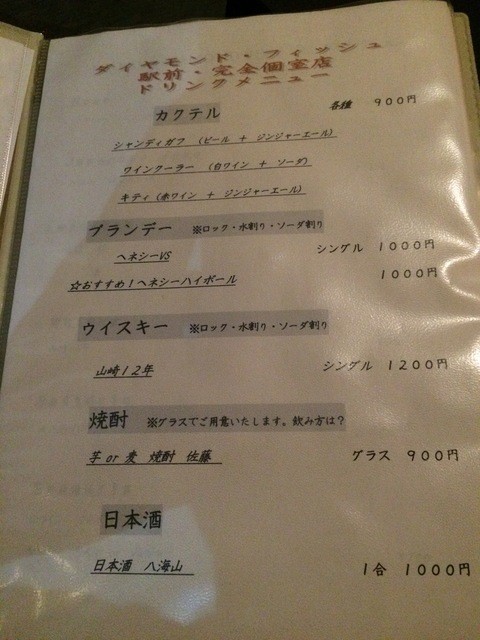 ダイヤモンド・フィッシュ
駅前・完全個室店
ドリンクメニュー
カクテル 各種 900円
シャンディガフ (ビール + ジンジャーエール)
ワインクーラー (白ワイン + ソーダ)
キティ (赤ワイン + ジンジャーエール)
ブランデー ※ロック・水割り・ソーダ割り
ヘネシーVS シングル 1000円
☆おすすめ!ヘネシーハイボール 1000円
ウイスキー ※ロック・水割り・ソーダ割り
山崎12年 シングル 1200円
焼酎 ※グラスでご用意いたします。飲み方は?
芋 or 麦 焼酎 佐藤 グラス 900円
日本酒
日本酒 八海山 1合 1000円